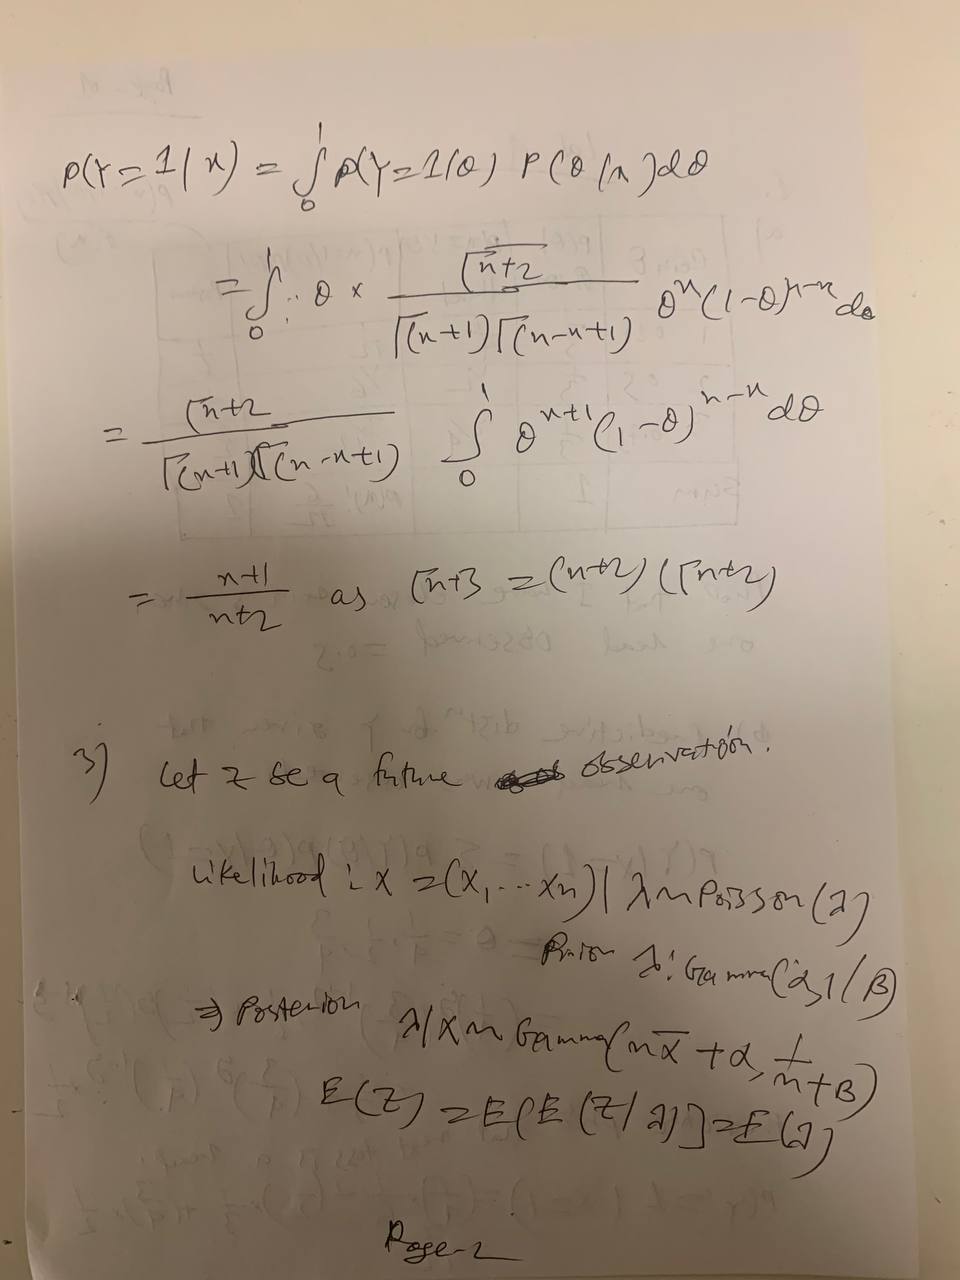 P(Y=1/x) = ∫₀¹ P(Y=1/θ) P(θ/x)dθ
= ∫₀¹ θ × Γn+2 / Γ(x+1)Γ(n-x+1) θ^x (1-θ)^(n-x) dθ
= Γn+2 / Γ(x+1)Γ(n-x+1) ∫₀¹ θ^(x+1) (1-θ)^(n-x) dθ
= x+1 / n+2 as Γn+3 = (n+2)(Γn+2)
3) Let z be a future observation.
Likelihood : X = (X₁ ... Xn) | λ ~ Poisson (λ)
Prior λ: Gamma(α, 1/β)
⇒ Posterior λ/X ~ Gamma(nx̄ + α, 1/n+β)
E(Z) = E[E(Z/λ)] = E(λ)
Page-2